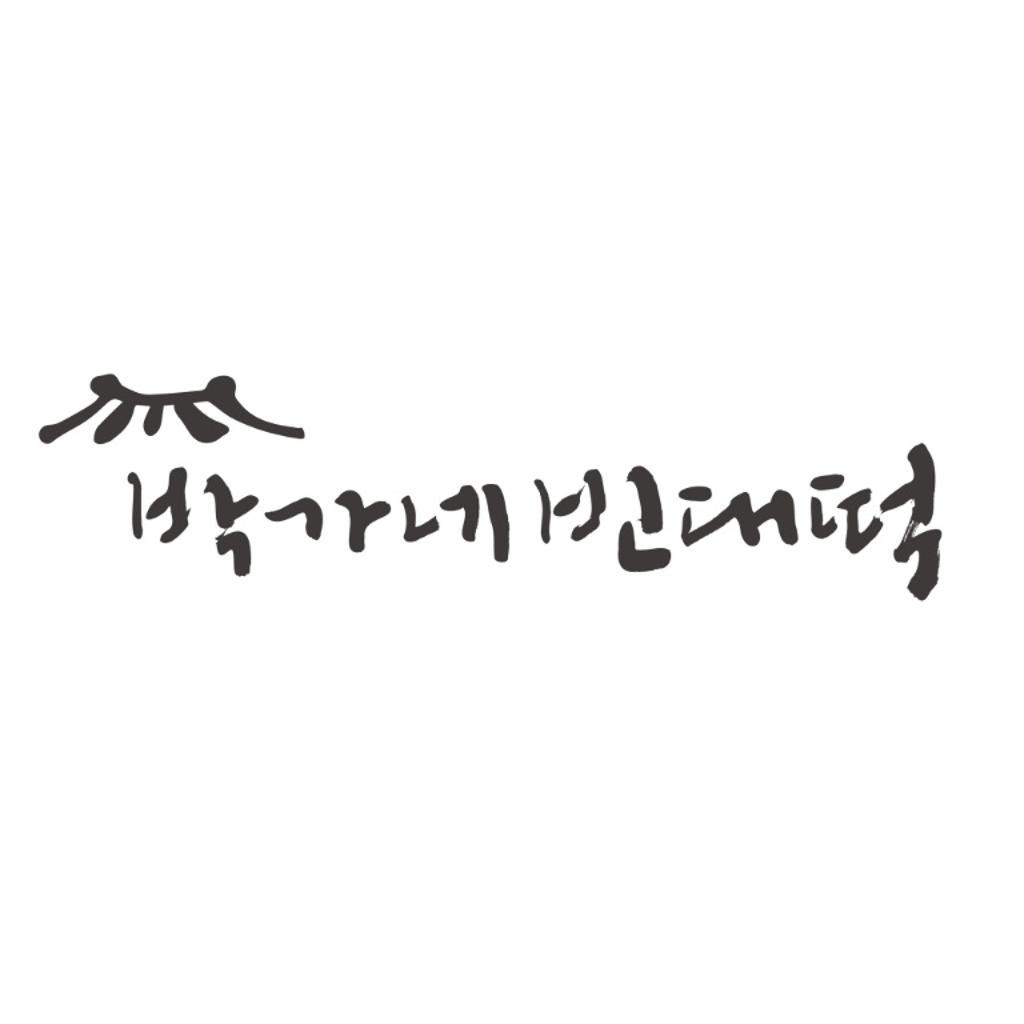 박가네 빈대떡